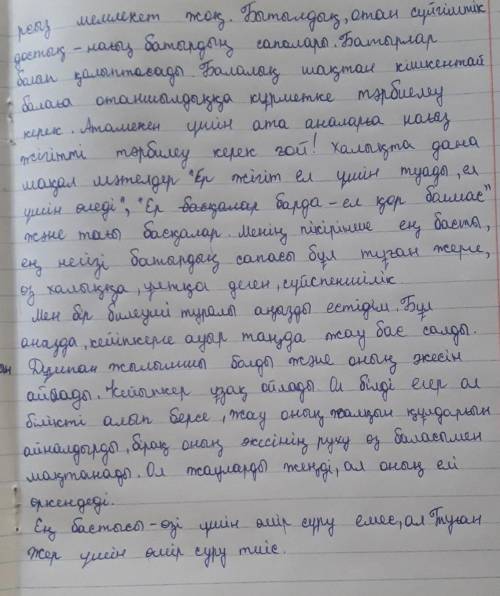 рсыз мемлекет жоқ. Батылдық, отан сүйгіштік
достық - нағыз батырдың сапалары. Батырлар
болып қалыптасады. Балалық шақтан кішкентай
балаға отаншылдыққа құрметке тәрбиелеу
керек. Атамекен үшін ата аналарға нағыз
жігітті тәрбилеу керек ғой! Халықта дана
мақал мәтелдер "Ер жігіт ел үшін туады, ел
үшін өледі", "Ер басқалар барда - ел қор болмас"
және тағы басқалар. Менің пікірінше ең басты,
ең негізі батырдың сапасы бұл туған жерге,
өз халыққа, ұлтқа деген, сүйспеншілік
Мен бір билеуші туралы аңызды естідім. Бұл
аңызда, кейіпкерге ауыр таңда жау бас салды.
Дұшпан жылымшы болды және оның әкесін
айдады. Кейіпкер ұзақ ойлады Ол білді егер ол
білікті алып берсе, жау оның халқын құлдарын
айналдырды, бірақ оның әкесінің руху өз баласымен
мақтанады. Ол жауларды жеңді, ал оның елі
өркендеді.
Ең бастысы - өзі үшін өмір сүру емес, ал Туған
Жер үшін өмір сүру тиіс.